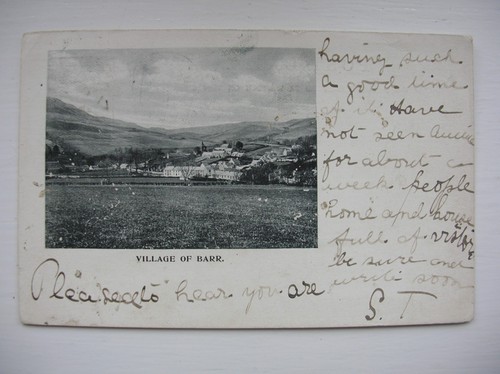 VILLAGE OF BARR.
Pleased to hear you are
having such
a good time
of it. Have
not seen
for about a
week people
home and house
full of
be sure and
write soon
S. T